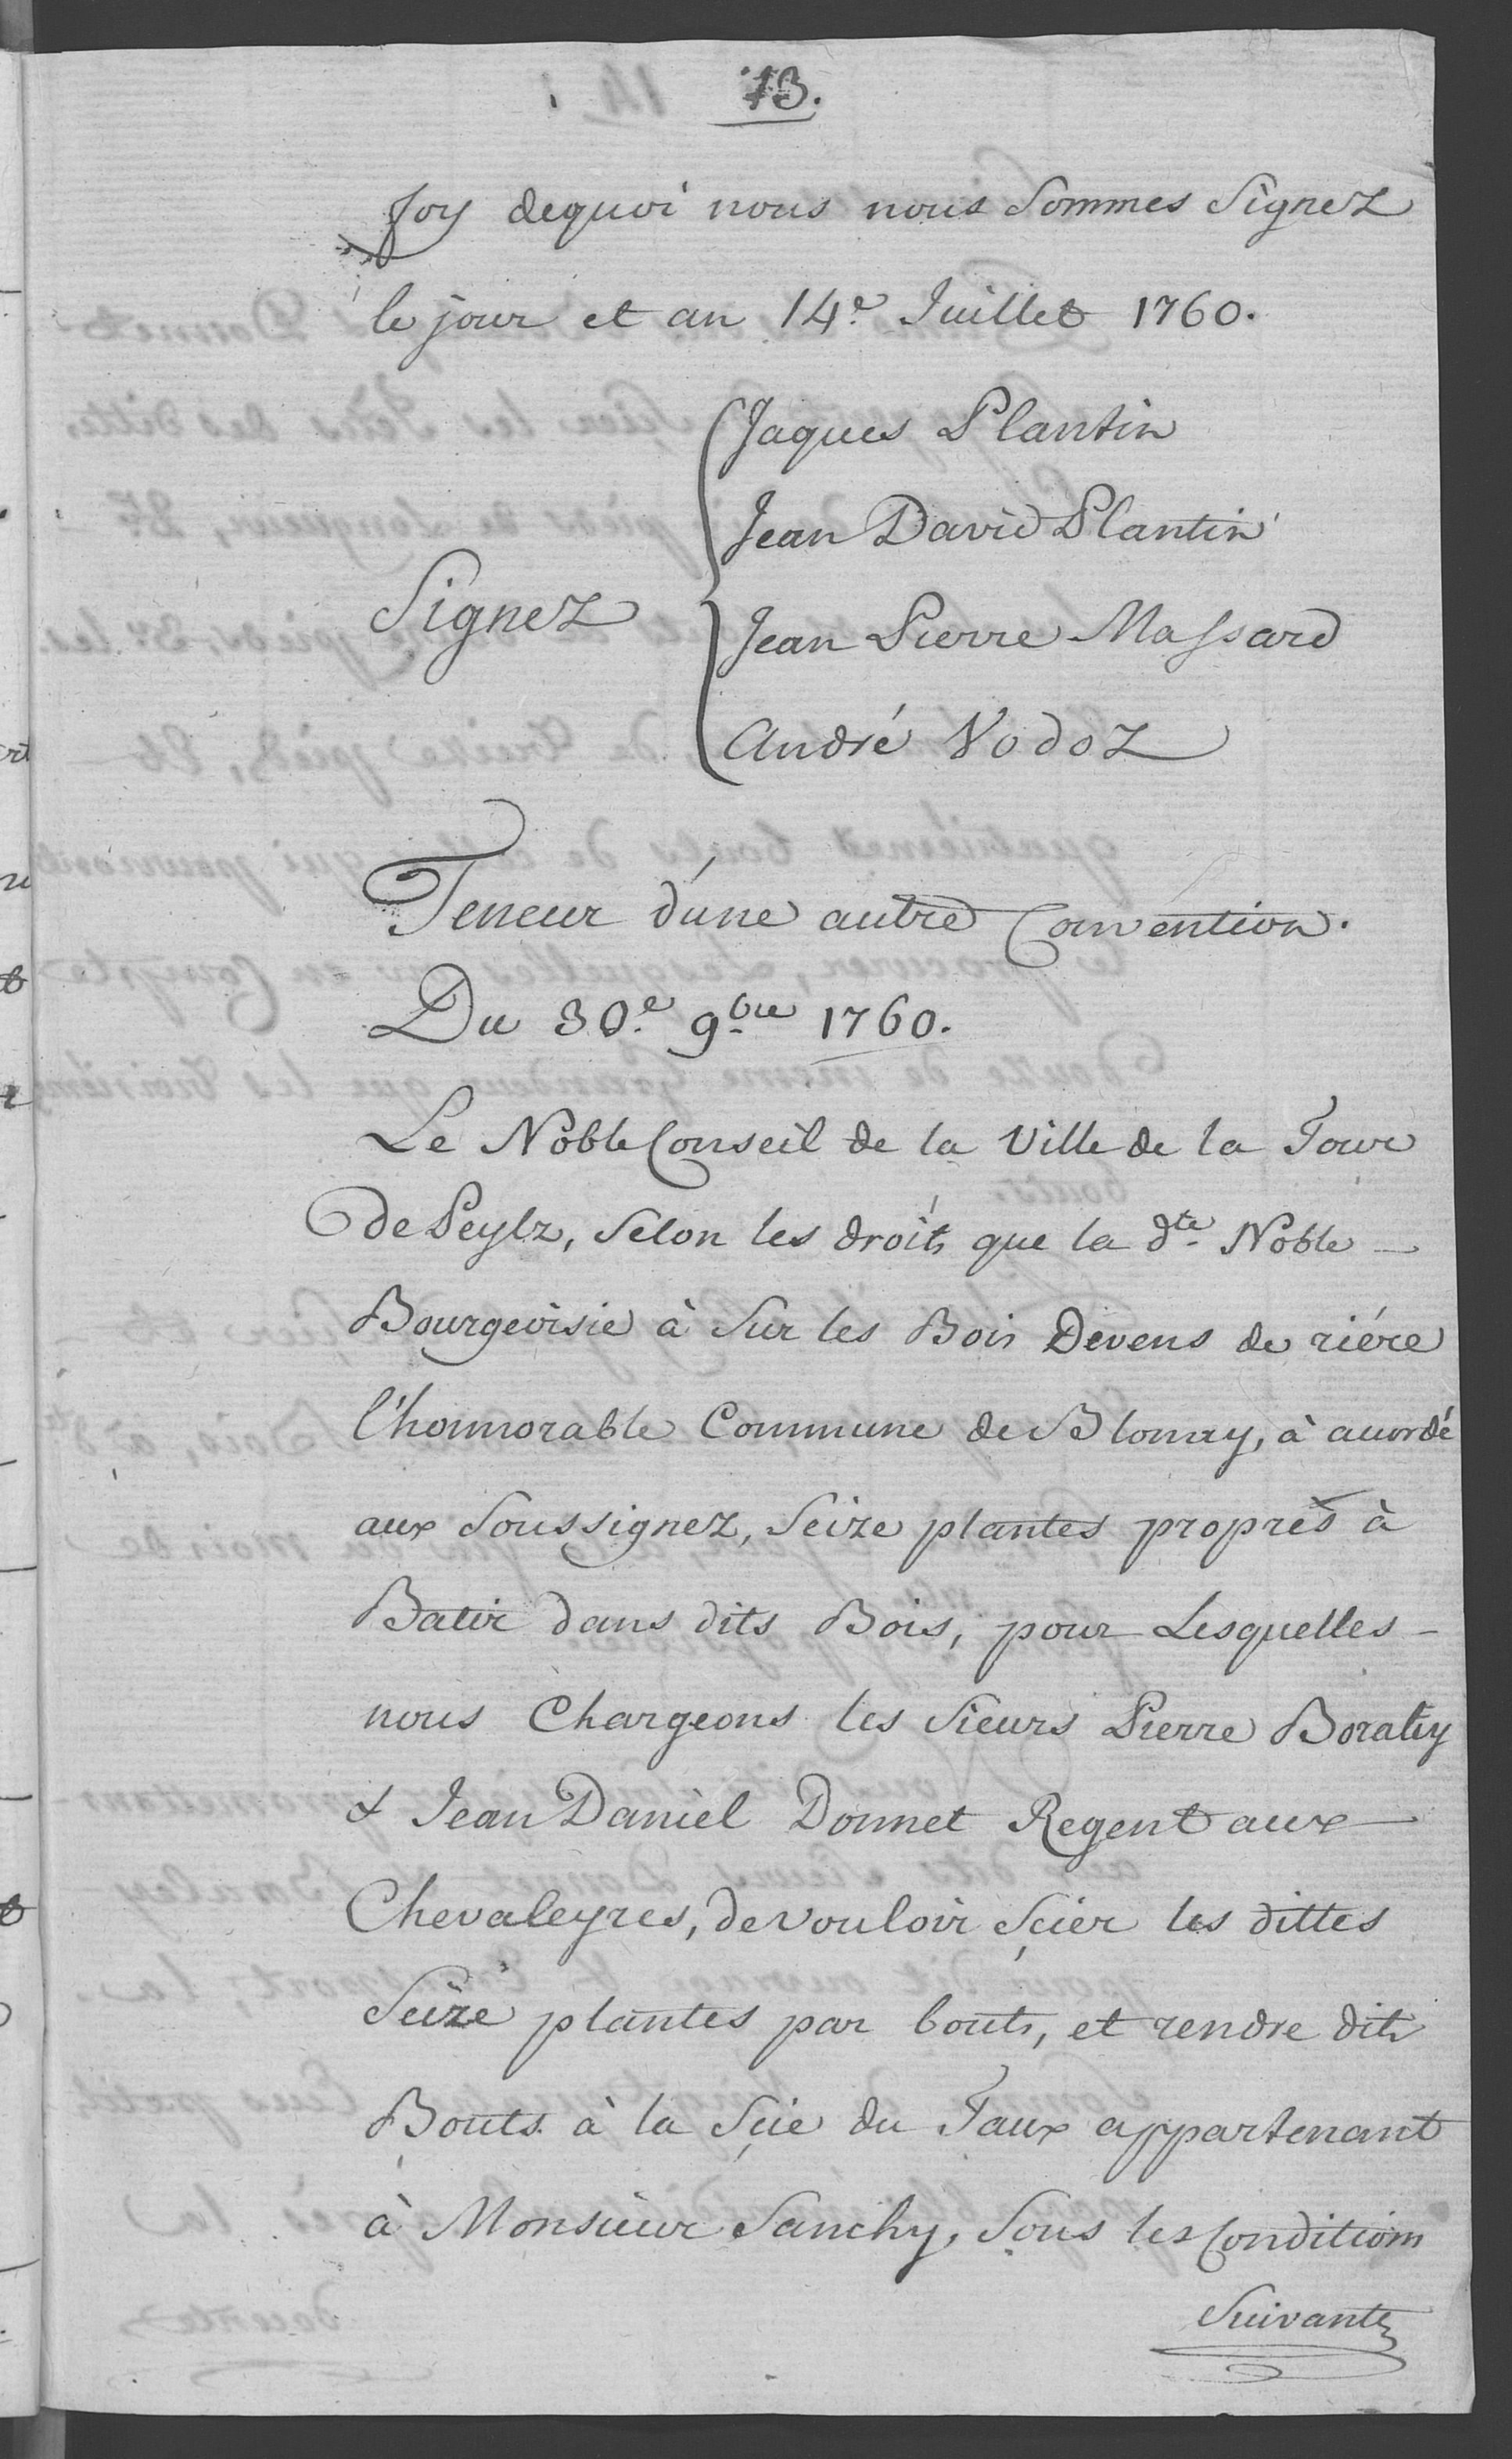 13.
foy dequoi nous nous Sommes Signez
le jour et an 14.e Juillet 1760.
Jaques Plantin
Jean David Plantin
Signez
Jean Pierre Massard
André Vodoz
Teneur d'une autre Convention.
Du 30.e 9.bre 1760.
Le Noble Conseil de la Ville de la Tour
de Peylz, Selon les droits que la d.te Noble
Bourgeoisie à Sur les Bois Devens de riére
l'honnorable Commune de Blonay, à acordé
aux Soussignez, Seize plantes propres à
Batir dans dits Bois, pour Lesquelles
nous Chargeons les Sieurs Pierre Boraley
& Jean Daniel Donnet Regent aux
Chevaleyres, de vouloir Scier les dittes
Seize plantes par bouts, et rendre dits
Bouts à la Scie du Faux appartenant
à Monsieur Sanchy, Sous les Conditions
Suivantes